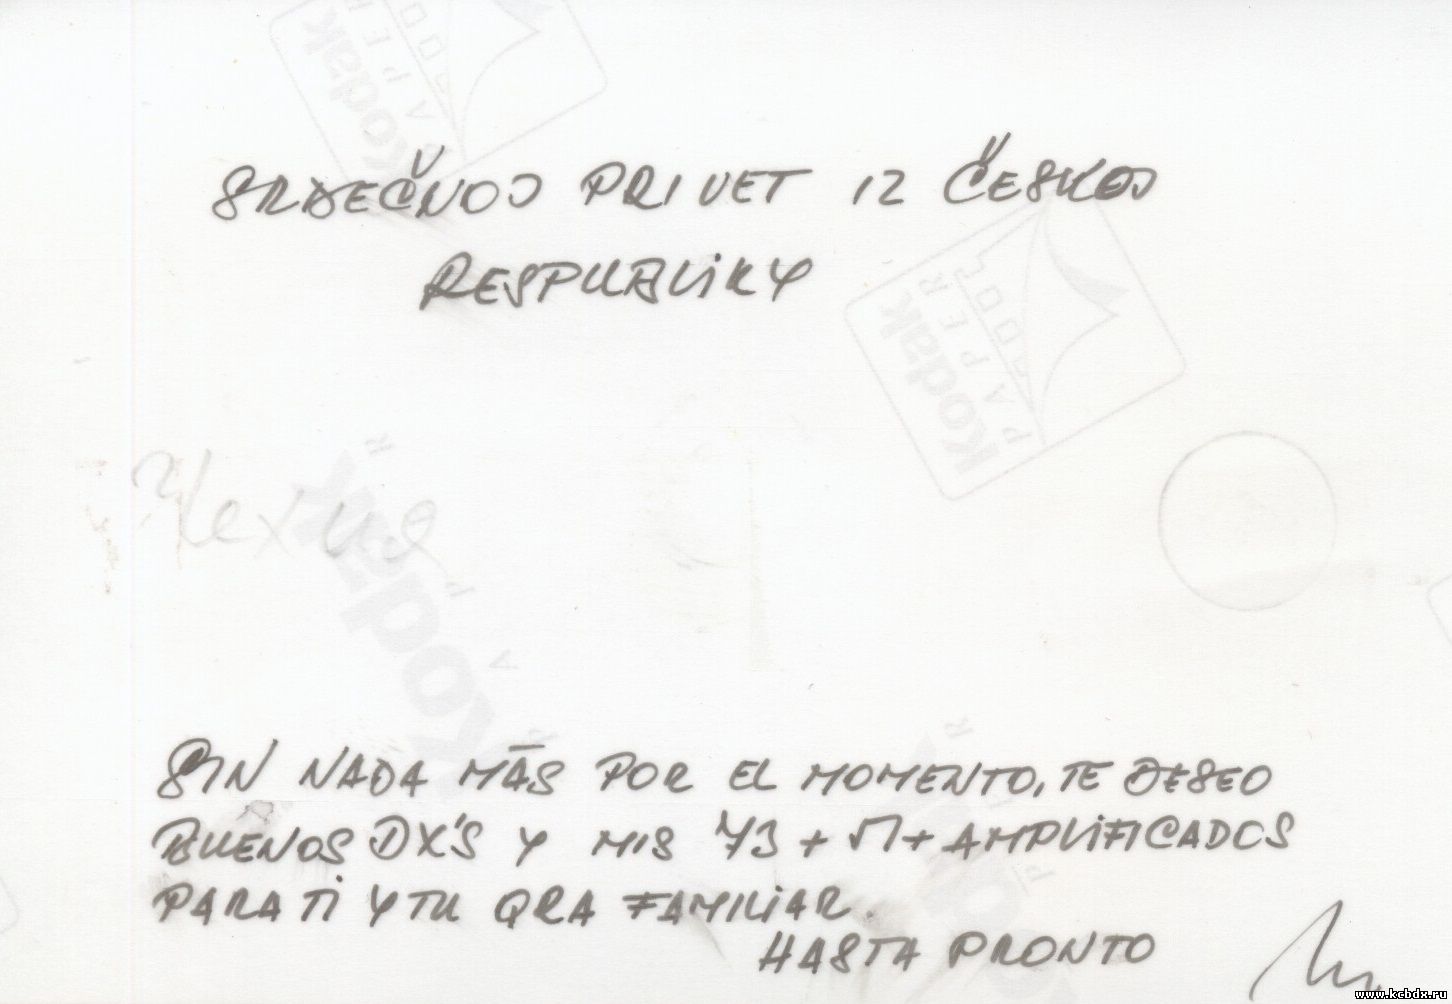 SRDEČNOJ PRIVET IZ ČESKOJ
RESPUBLIKY
Чехия
SIN NADA MÁS POR EL MOMENTO, TE DESEO
BUENOS DX'S Y MIS 73 + 51 + AMPLIFICADOS
PARA TI Y TU QRA FAMILIAR.
HASTA PRONTO
Kodak
PAPER
Kodak
PAPER
Kodak
www.kcbdx.ru